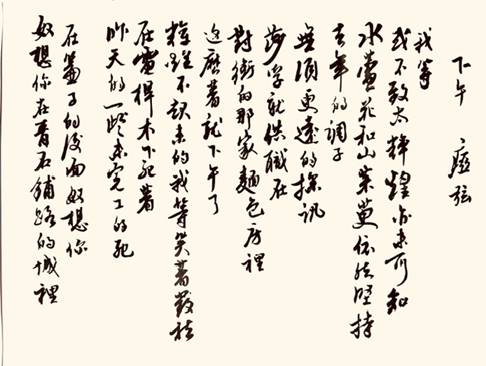 下午 瘂弦
我等
或不致太輝煌亦未可知
水葫蘆花和山茱萸依然堅持
去年的調子
無須更遠的探訊
莎孚就供職在
對街的那家麵包房裡
這麼著就下午了
輝煌不起來的我等笑著發愁
在電桿木下死著
昨天的一些未完工的死
在簾子的後面奴想你
奴想你在青石鋪路的城裡